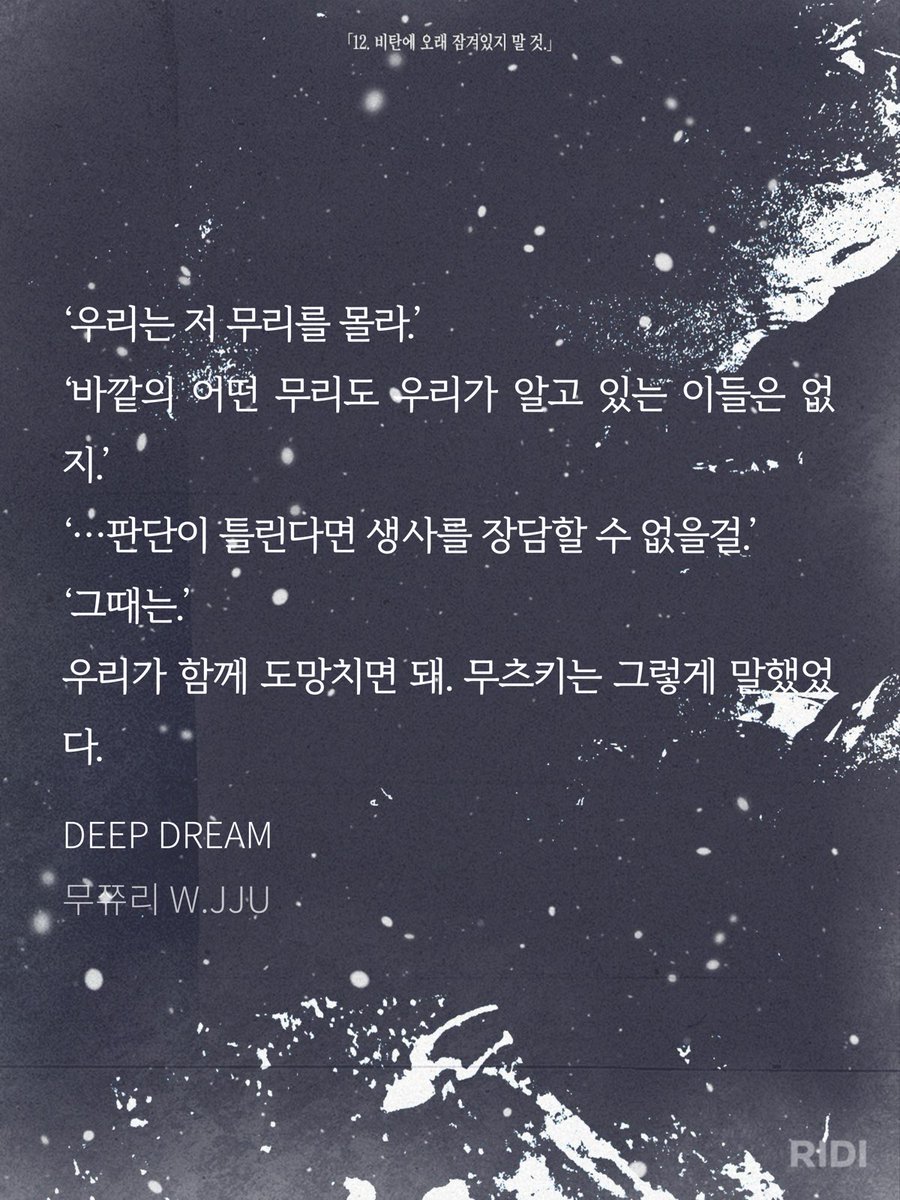 「12. 비탄에 오래 잠겨있지 말 것.」
‘우리는 저 무리를 몰라.’
‘바깥의 어떤 무리도 우리가 알고 있는 이들은 없
지.’
‘…판단이 틀린다면 생사를 장담할 수 없을걸.’
‘그때는.’
우리가 함께 도망치면 돼. 무츠키는 그렇게 말했었
다.
DEEP DREAM
무쮸리 W.JJU
RIDI